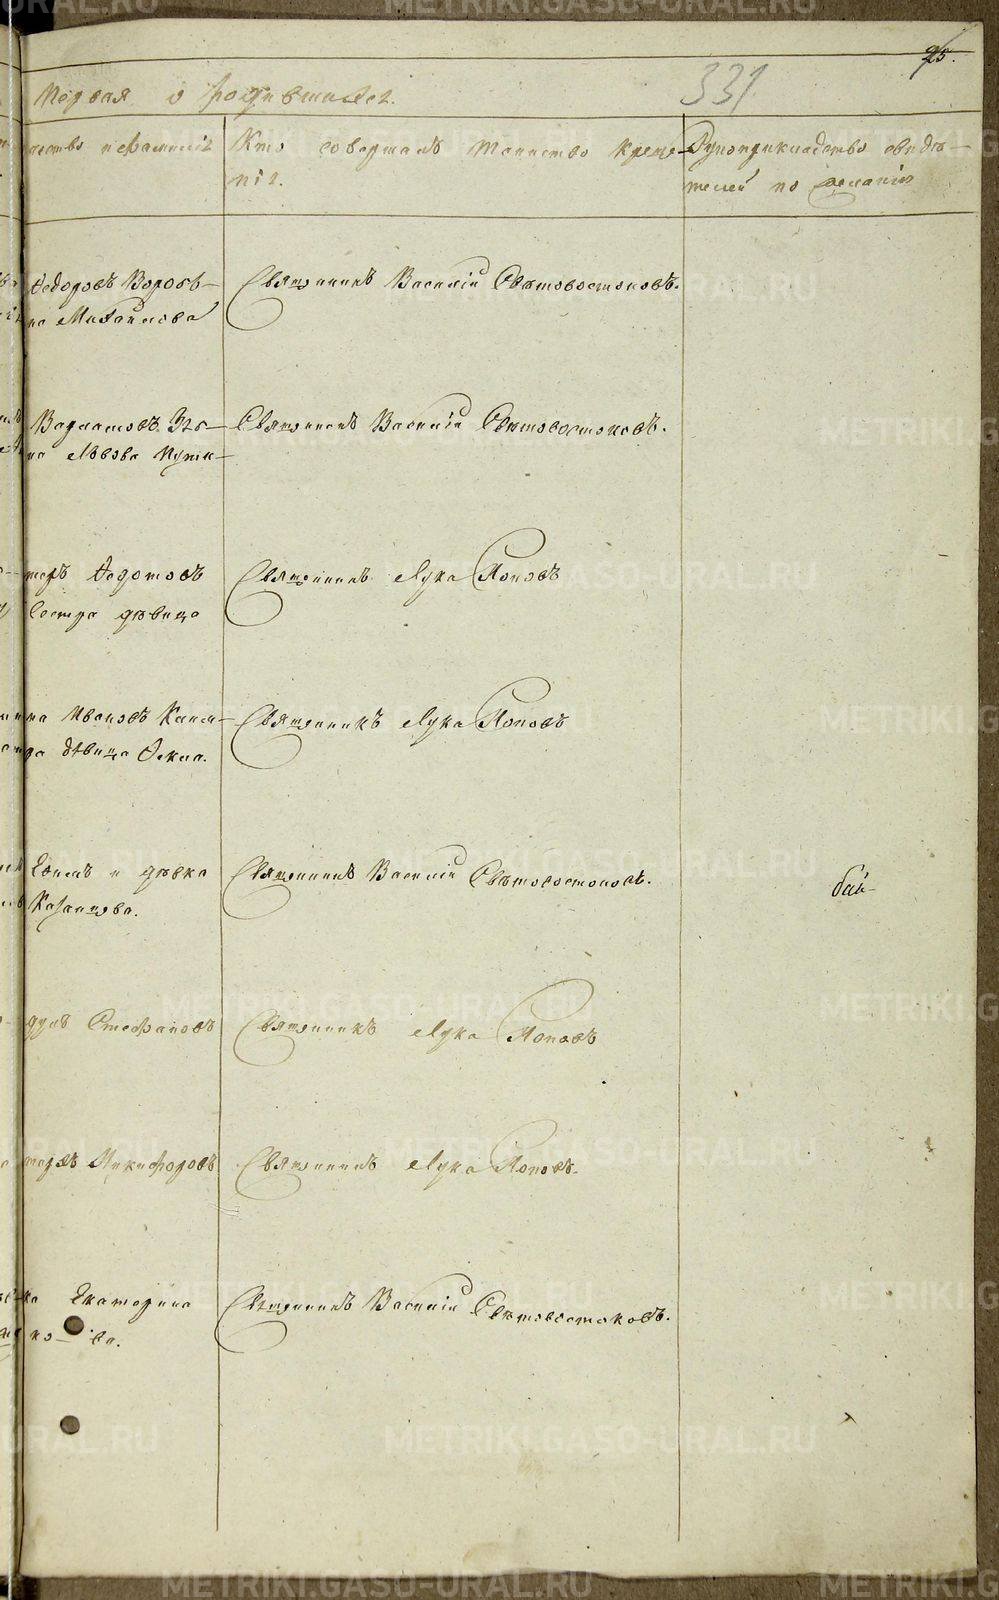 25.
331
Первая о родившихся.
чество и фамилія
Кто совершалъ таинство креще-
нія.
Рукоприкладство свидѣ-
телей по желанію
Ѳедоровъ Вороб-
на Михайлова
Священникъ Василій Свѣтовостоковъ.
Варламовъ
на Львова
Священникъ Василій Свѣтовостоковъ.
теръ Ѳедотовъ
сестра дѣвица
Священникъ Лука Поповъ
на Ивановъ
да дѣвица Ѳекла.
Священникъ Лука Поповъ
Ефимъ и дѣвка
Казанцова.
Священникъ Василій Свѣтовостоковъ.
бай-
дулъ Стефановъ
Священникъ Лука Поповъ
Никифоровъ
Священникъ Лука Поповъ.
ка Екатерина
ва.
Священникъ Василій Свѣтовостоковъ.
METRIKI.GASO-URAL.RU